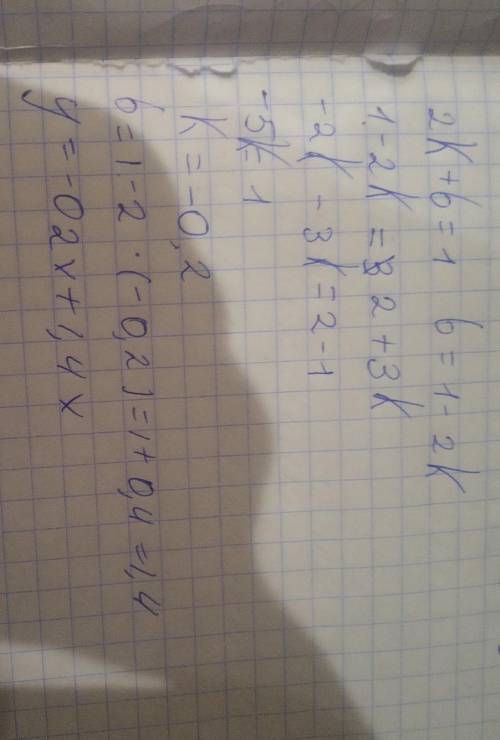 2k+b=1 b=1-2k
1-2k=2+3k
-2k-3k=2-1
-5k=1
k=-0,2
b=1-2·(-0,2)=1+0,4=1,4
y=-02x+1,4x